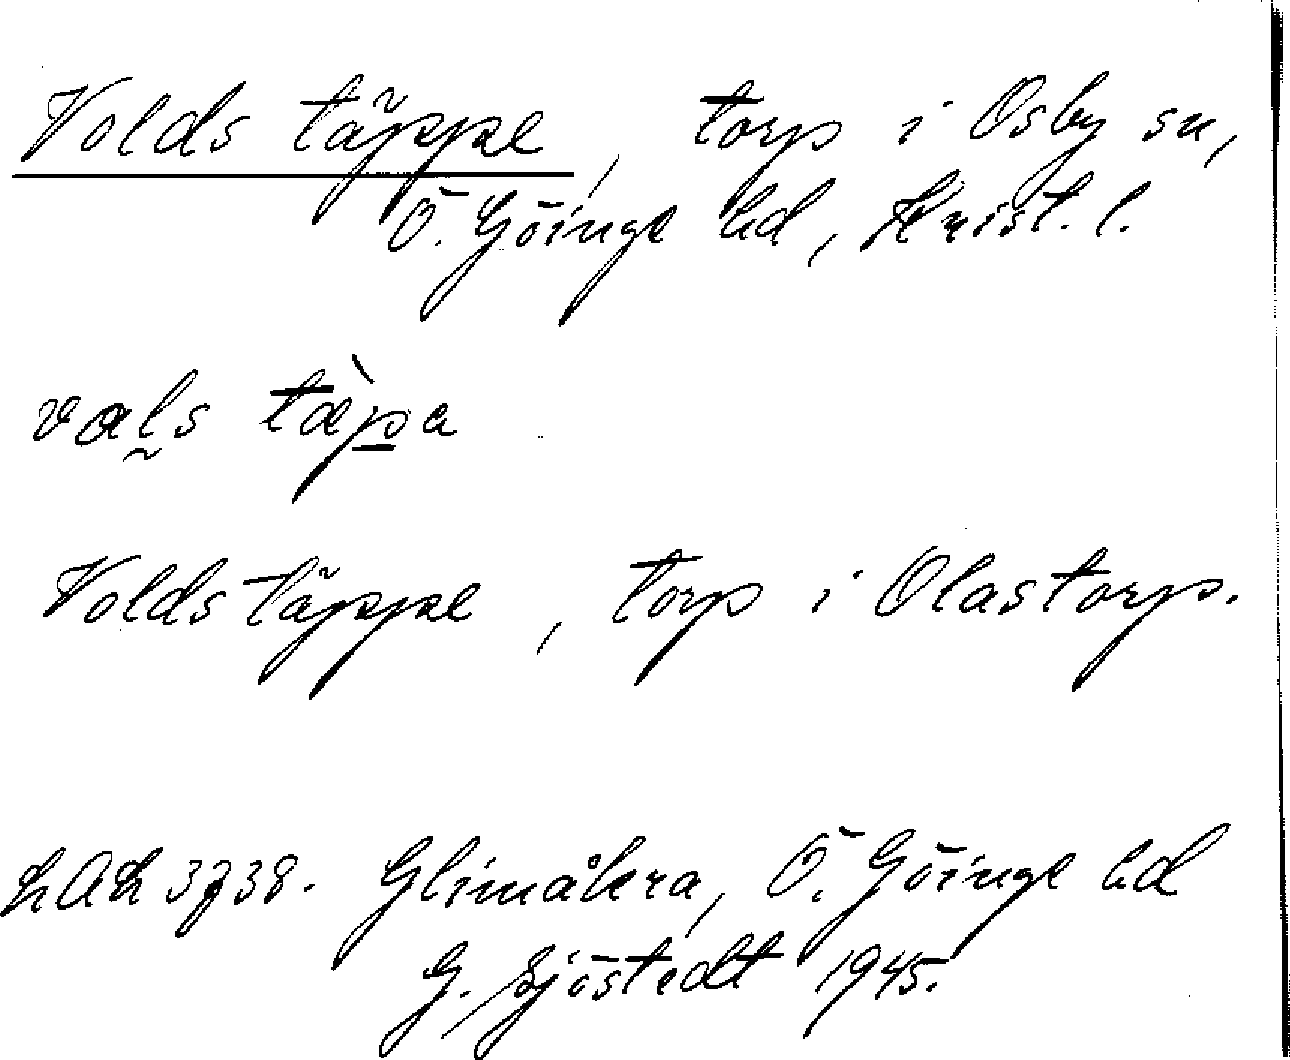 Volds täppe, torp i Osby sn,
Ö. Göinge hd, Krist. l.
vals tæ̀pa
Voldstäppe, torp i Olastorp.
LAL 3738. Glimåkra, Ö. Göinge hd
G. Sjöstedt 1945.